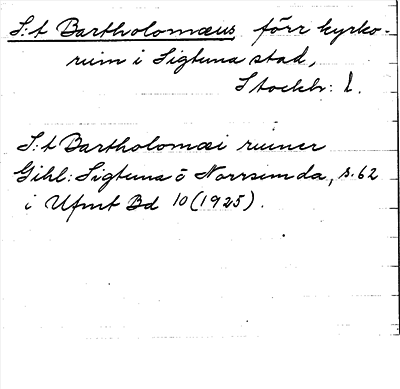 S:t Bartholomæus, förr kyrko-
ruin i Sigtuna stad,
Stockh: L.
S:t Bartholomæi ruiner
Gihl: Sigtuna o Norrsunda, s. 62
i Ufmt Bd 10 (1925).